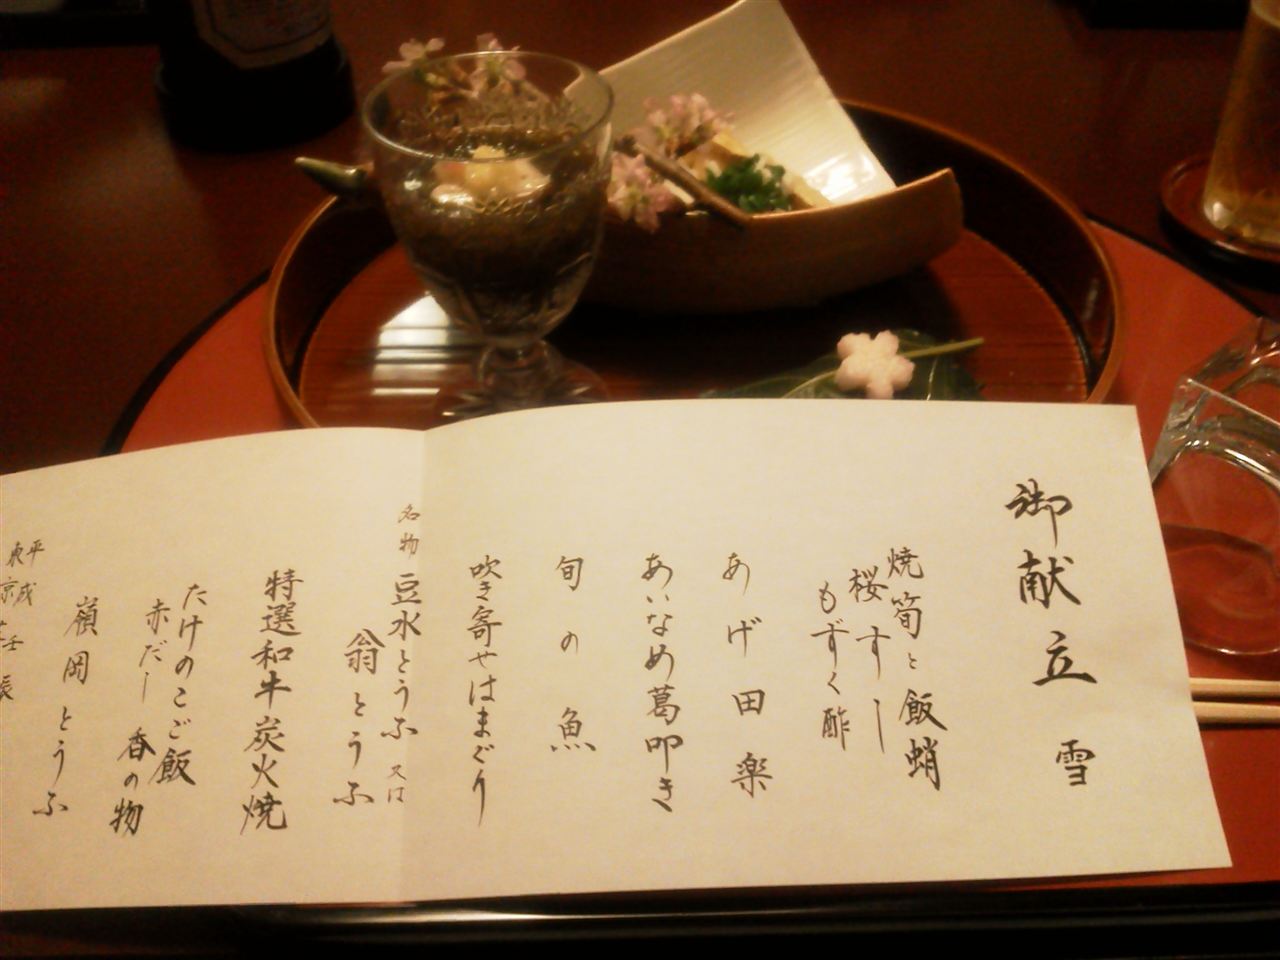 御献立 雪
焼筍と飯蛸
桜すし
もずく酢
あげ田楽
あいなめ葛叩き
旬の魚
吹き寄せはまぐり
名物 豆水とうふ 又は
翁とうふ
特選和牛炭火焼
たけのこご飯
赤だし 香の物
嶺岡とうふ
平成
東京